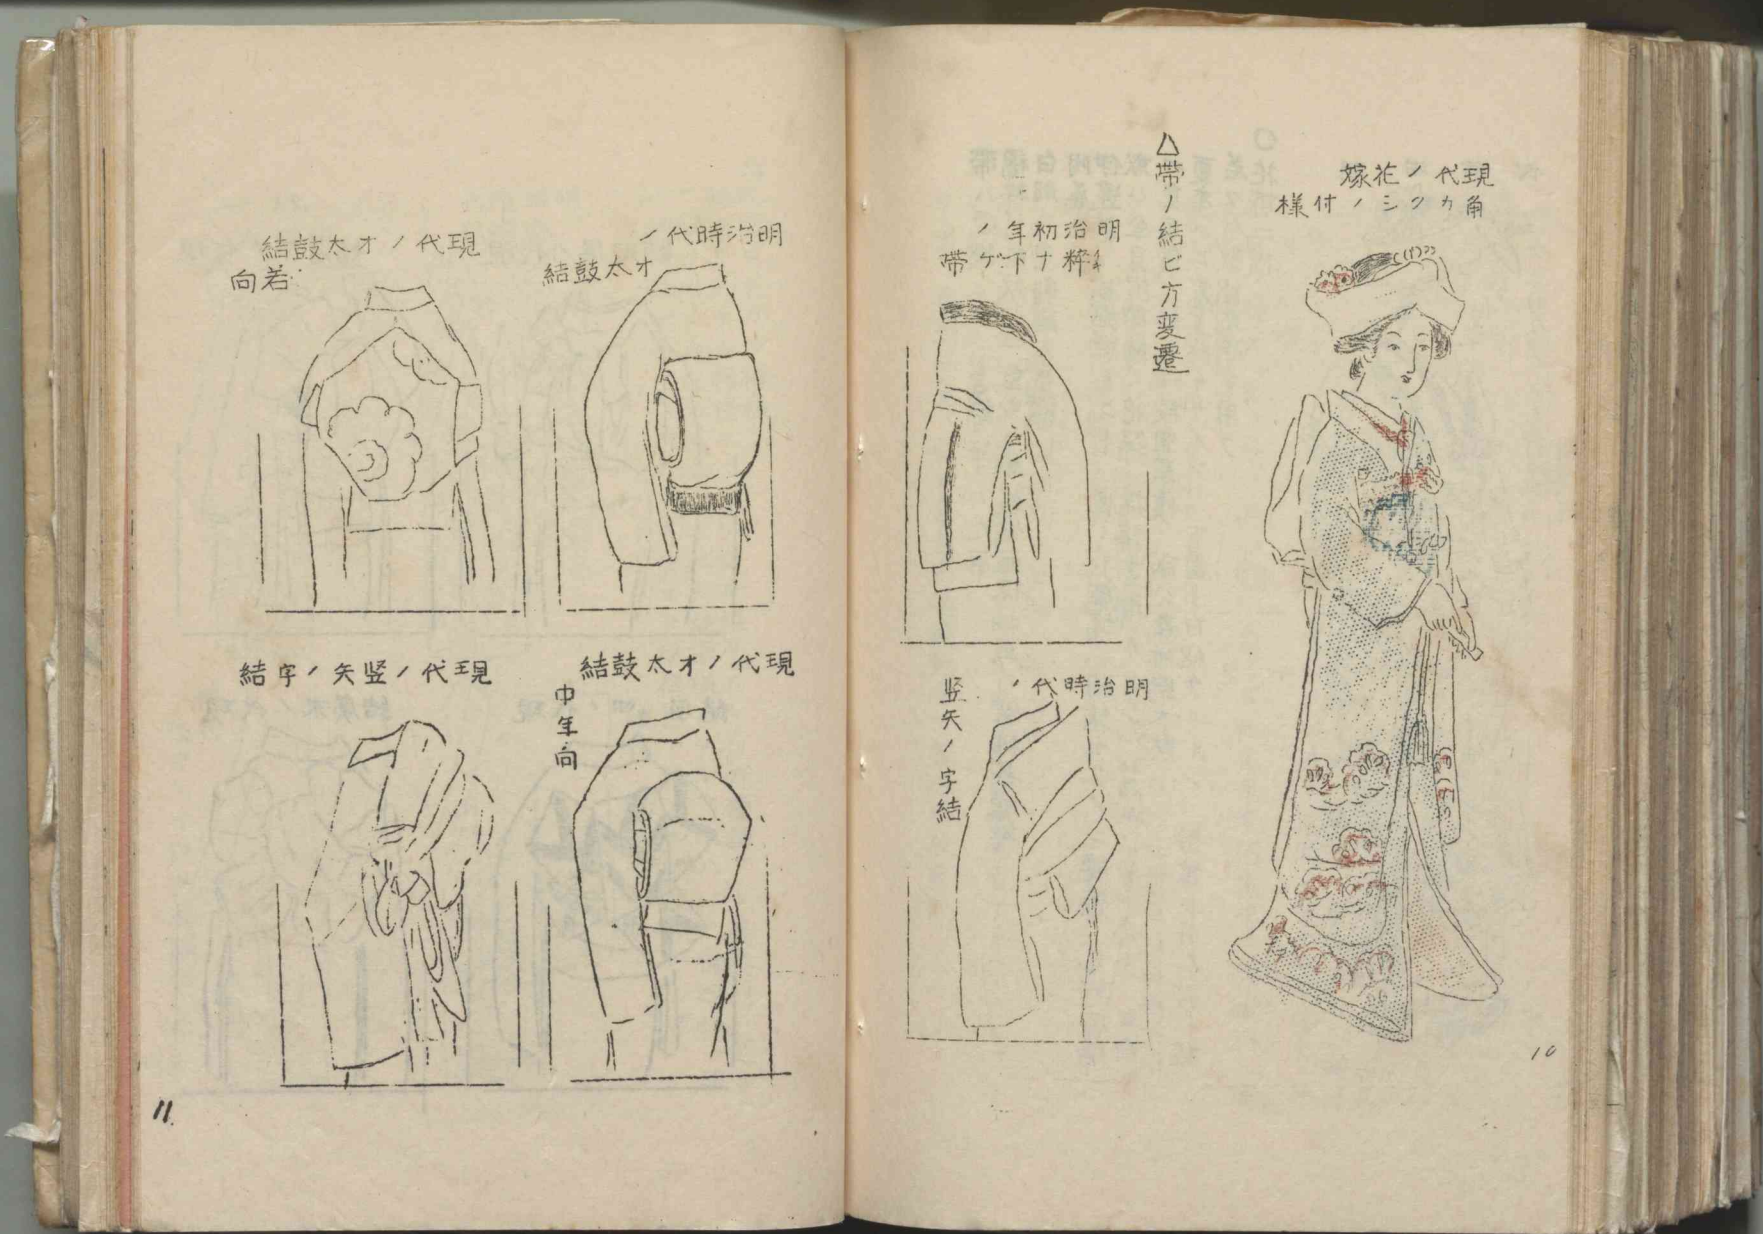 現代ノ花嫁
角カクシノ付様
△帯ノ結ビ方変遷
明治初年ノ
粋ナ下ゲ帯
明治時代ノ
竪矢ノ字結
10
明治時代ノ
オ太鼓結
現代ノオ太鼓結
若向
現代ノオ太鼓結
中年向
現代ノ竪矢ノ字結
11.